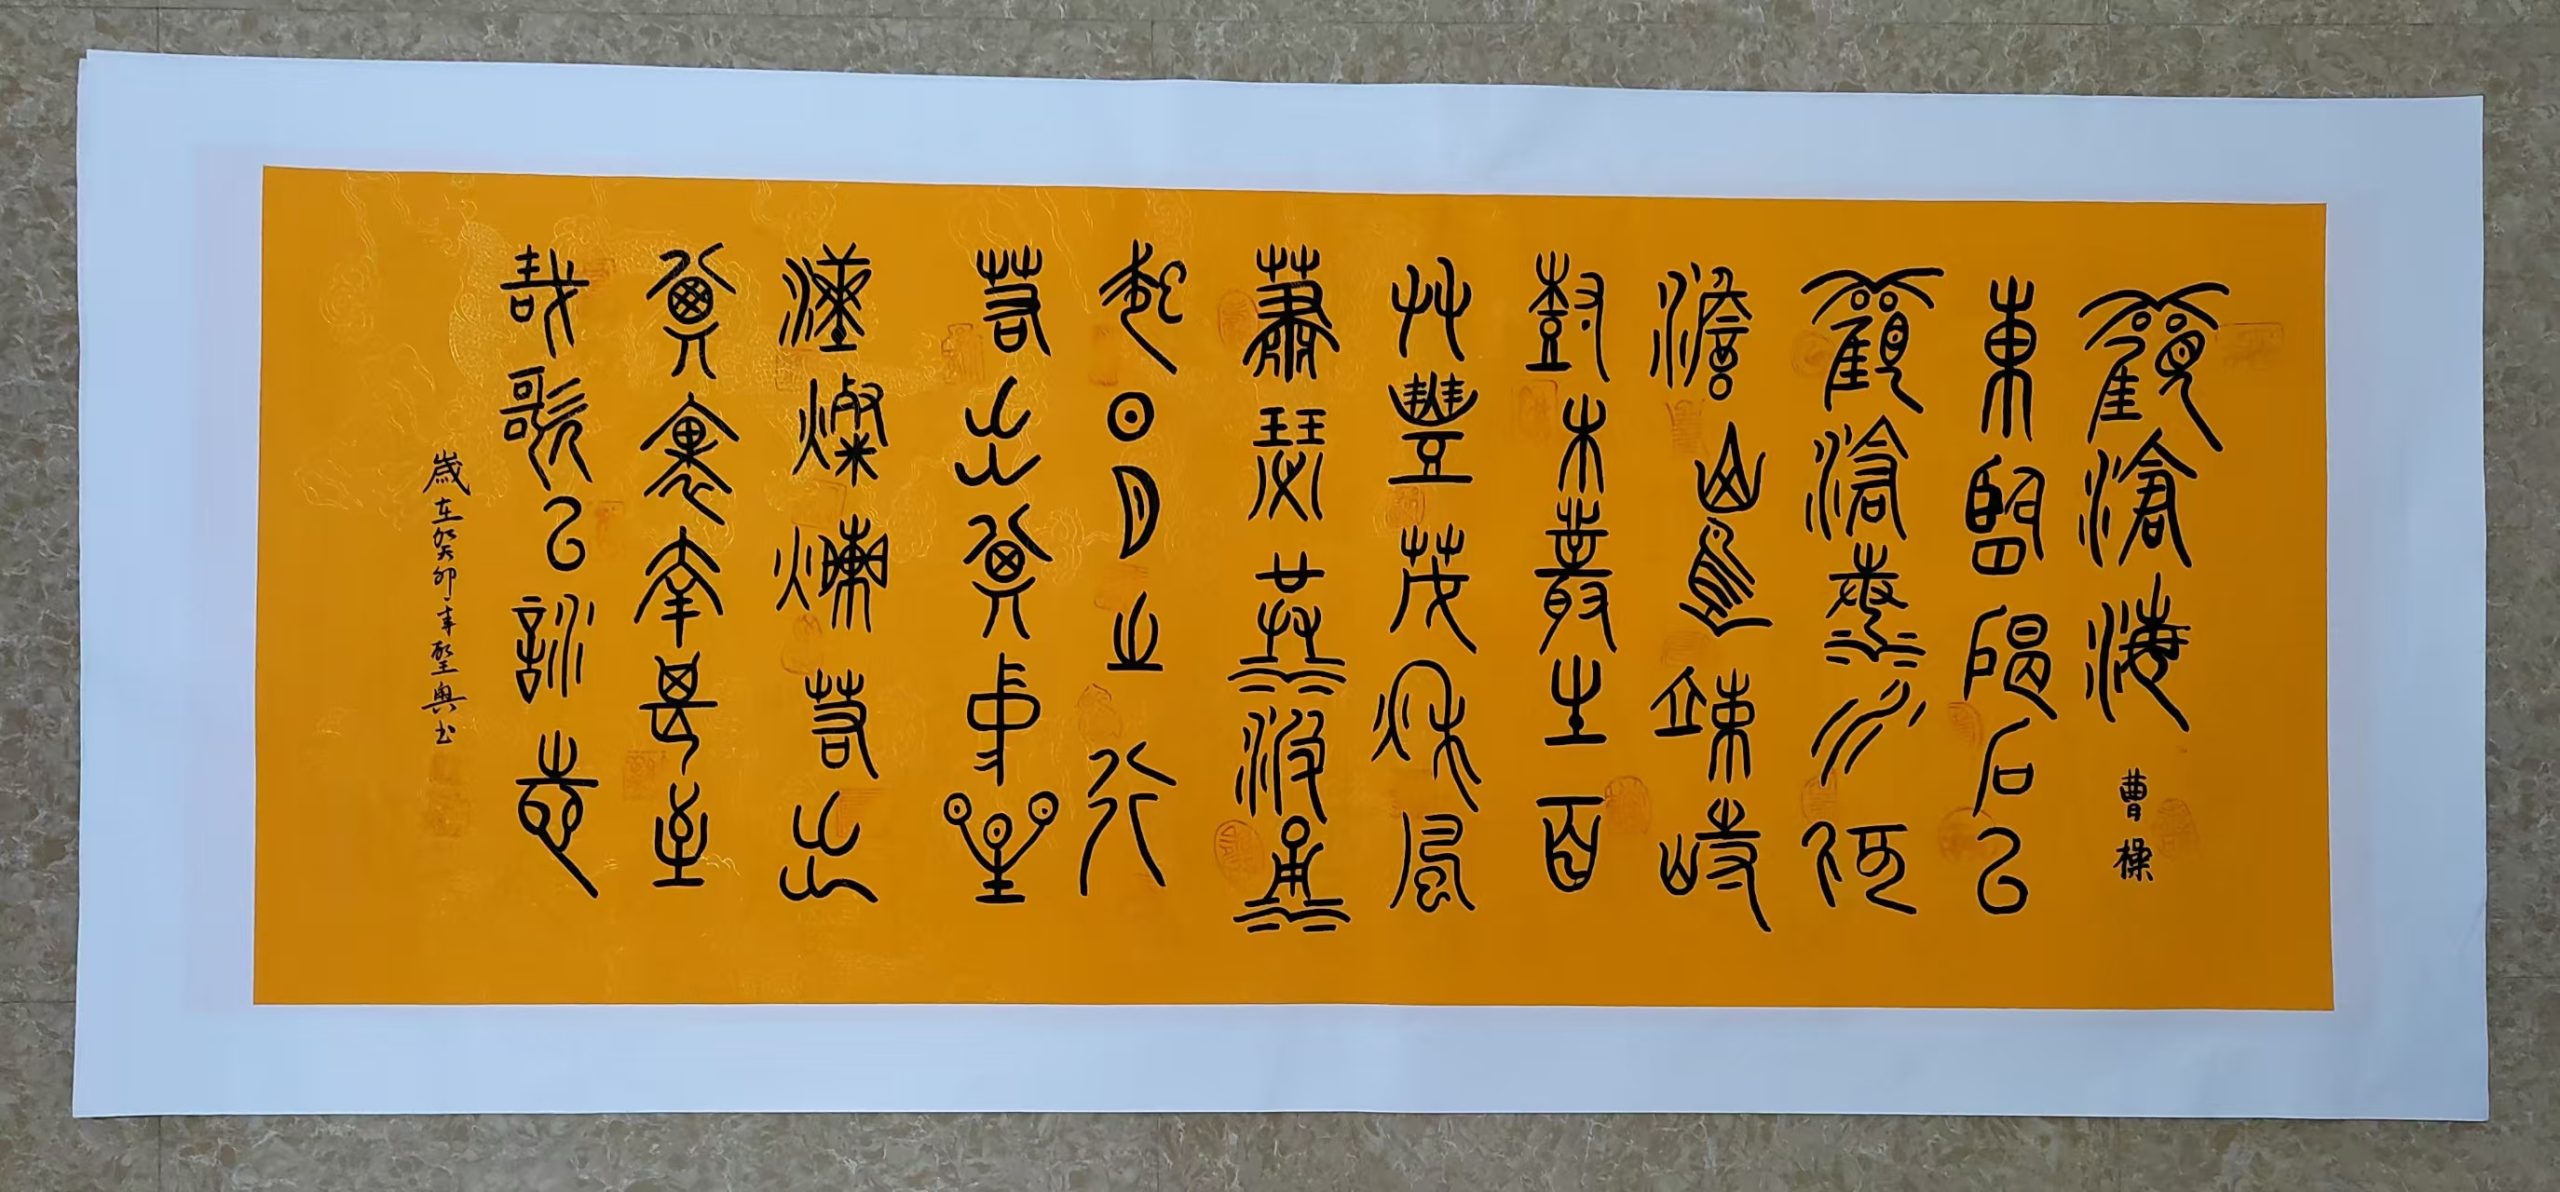 觀滄海 曹操
東臨碣石以
觀滄海水何
澹山島竦峙
樹木叢生百
艸豐茂秋風
蕭瑟洪波涌
起日月之行
若出其中星
漢燦爛若出
其裏幸甚至
哉歌以詠志
歲在癸卯年書